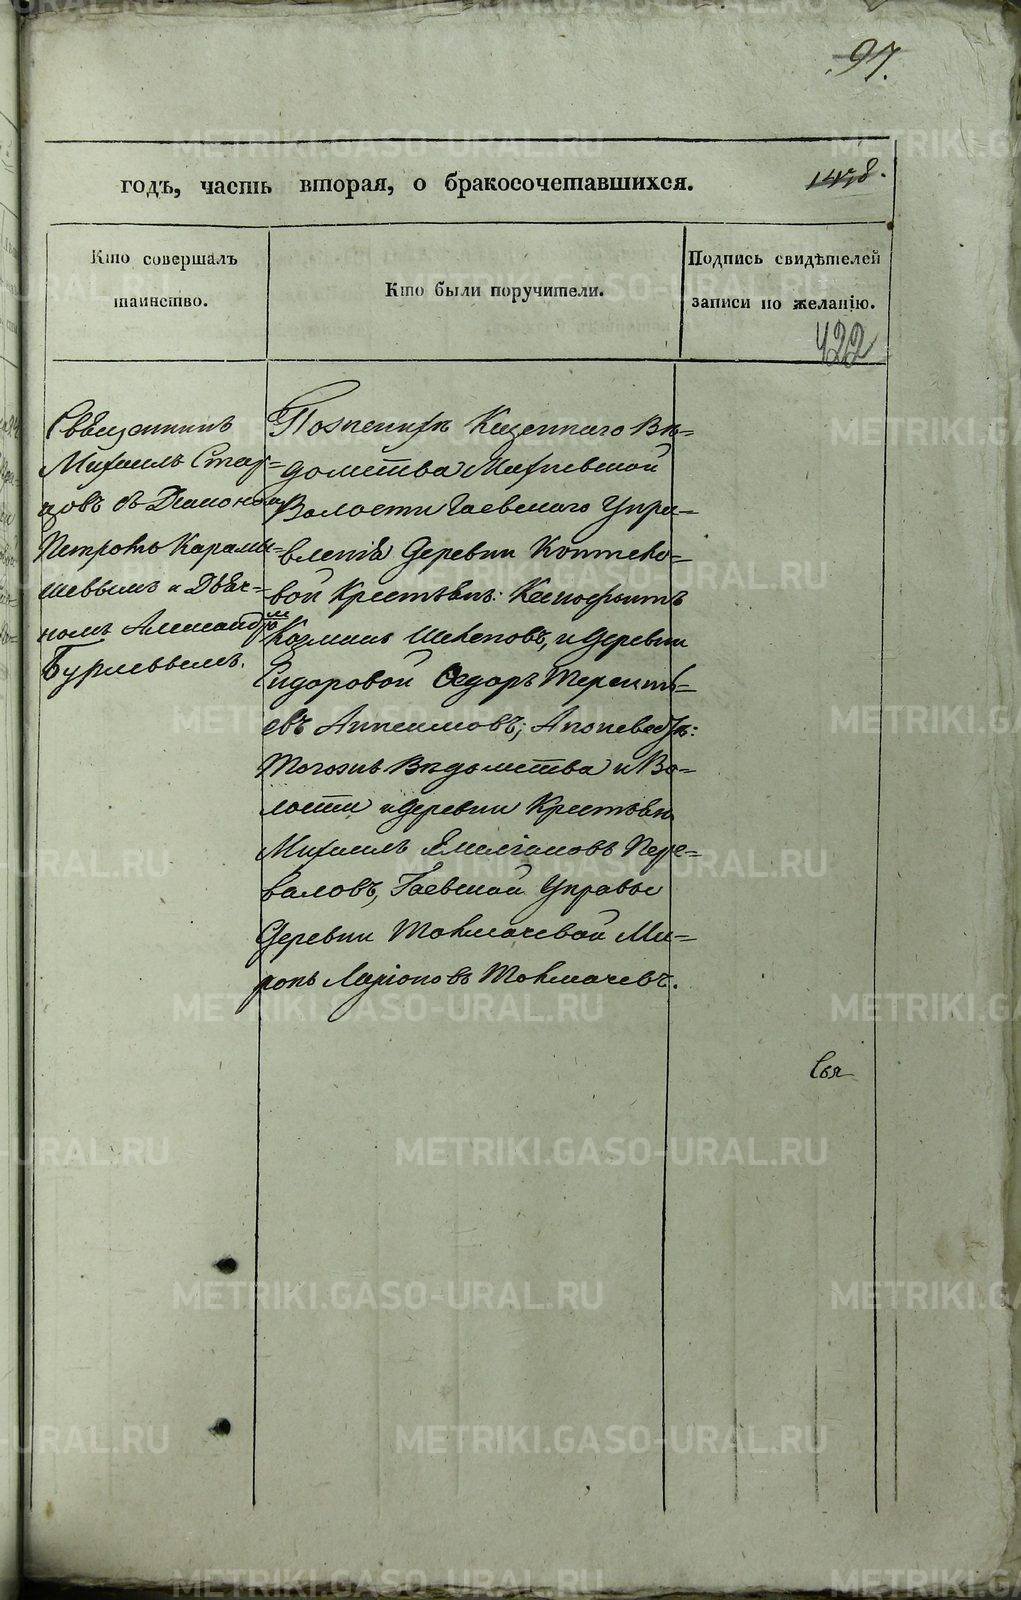 97.
годъ, часть вторая, о бракосочетавшихся.
1478.
Кто совершалъ
таинство.
Кто были поручители.
Подпись свидѣтелей
записи по желанію.
422
Священникъ
Михаилъ Стар=
цовъ съ Діакономъ
Петромъ Карамы=
шевымъ и Дьяч=
комъ Александромъ
Бурлевымъ.
По женихѣ Казеннаго Вѣ=
домства Махневской
Волости Гаевскаго Упра=
вленія Деревни Коптело=
вой Крестьян: Ксенофонтъ
Козминъ Шекеповъ, и деревни
Сидоровой Ѳедоръ Теренть=
евъ Анисимовъ; А по невестѣ:
Тогоже Вѣдомства и Во=
лости и деревни Крестьян
Михаилъ Емеліановъ Пере=
валовъ, Гаевской Управы
Деревни Токмачевой Ми=
ронъ Ларіоновъ Токмачевъ.
Свя
METRIKI.GASO-URAL.RU